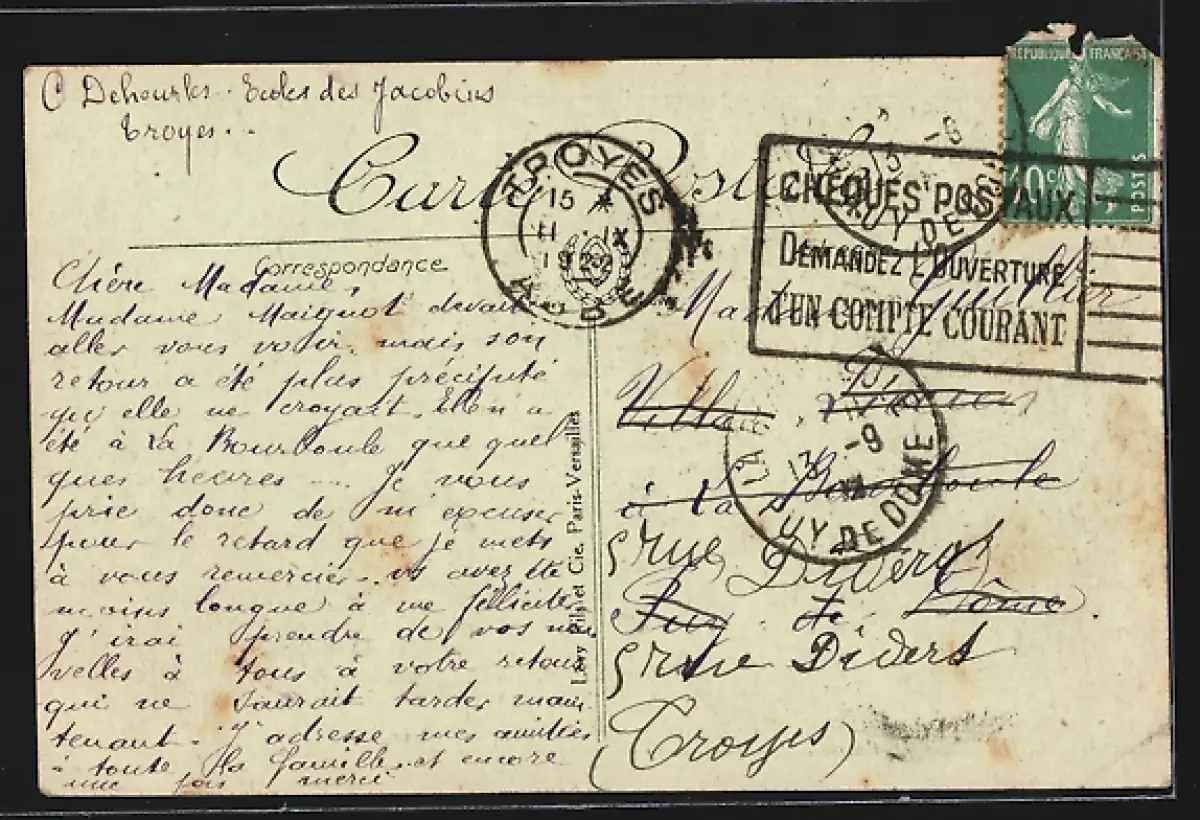 C Dehourles. Ecoles des Jacobins
Troyes..
Carte Postale
Correspondance
Chère Madame,
Madame Maignot devait
aller vous voir, mais son
retour a été plus précipité
qu'elle ne croyait. Elle n'a
été à la Bourboule que quel
ques heures .... Je vous
prie donc de m'excuser
pour le retard que je mets
à vous remercier. vs avez été
moins longue à me féliciter
J'irai prendre de vos nou
velles à tous à votre retour
qui ne saurait tarder main
tenant. J'adresse mes amitiés
à toute la famille et encore
une fois merci
TROYES
15
11 IX
19
AUBE
REPUBLIQUE FRANÇAISE
10c
POSTES
13 -9
PUY DE DOME
CHEQUES POSTAUX
DEMANDEZ L'OUVERTURE
D'UN COMPTE COURANT
Madame
Villa
à la Bourboule
13 -9
LA
PUY DE DOME
5 rue Diderot
Puy de Dôme.
5 rue Diderot
(Troyes)
Lévy Fils et Cie, Paris-Versailles